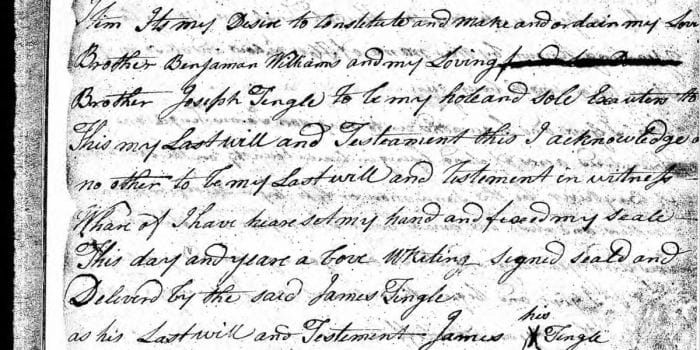 Itim Its my Desire to Constitute and make and ordain my Love
Brother Benjaman Williams and my Loving
Brother Joseph Tingle to be my hole and sole Executers to
This my Last will and Testeament this I acknowledge
no other to be my Last will and testement in witness
Whare of I have heare set my hand and fixed my seale
This day and yeare a bove Whriting signed seald and
Deliverd by the said James Tingle
his
as his Last will and Testement James X Tingle